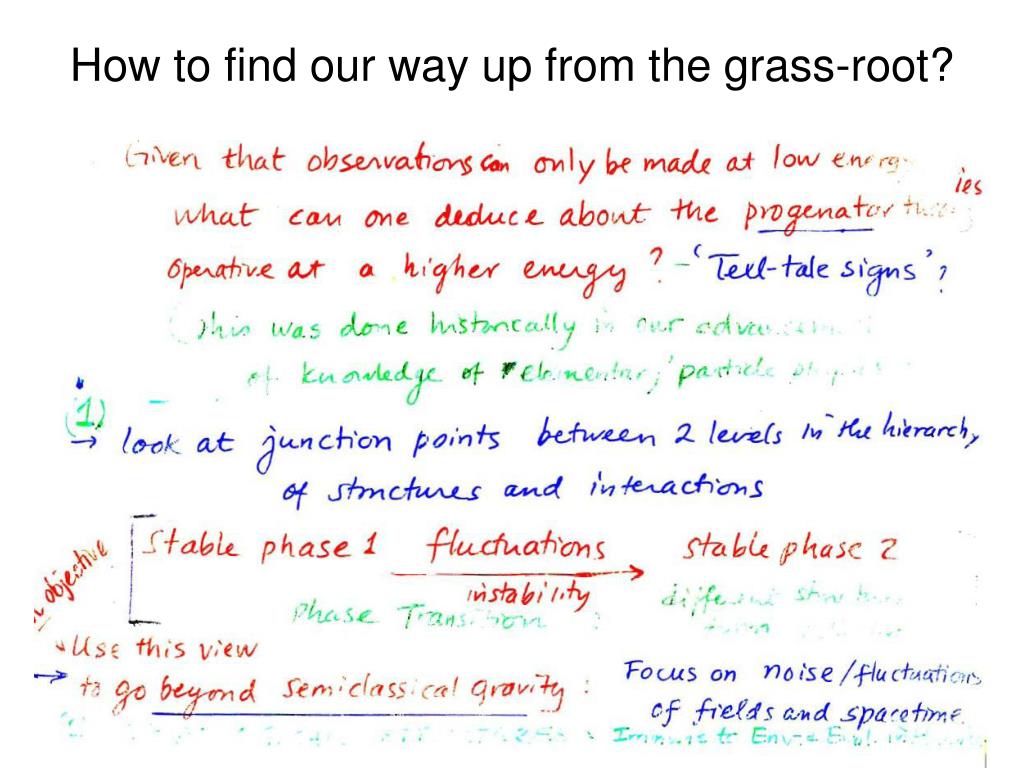 How to find our way up from the grass-root?
Given that observations can only be made at low energies
what can one deduce about the progenator
operative at a higher energy? – 'Tell-tale signs'?
This was done historically in our
of knowledge of 'elementary' particle
(1)
→ look at junction points between 2 levels in the hierarchy
of structures and interactions
objective
Stable phase 1 fluctuations stable phase 2
instability
Phase Transition different
Use this view
→ to go beyond semiclassical gravity : Focus on noise/fluctuations
of fields and spacetime.